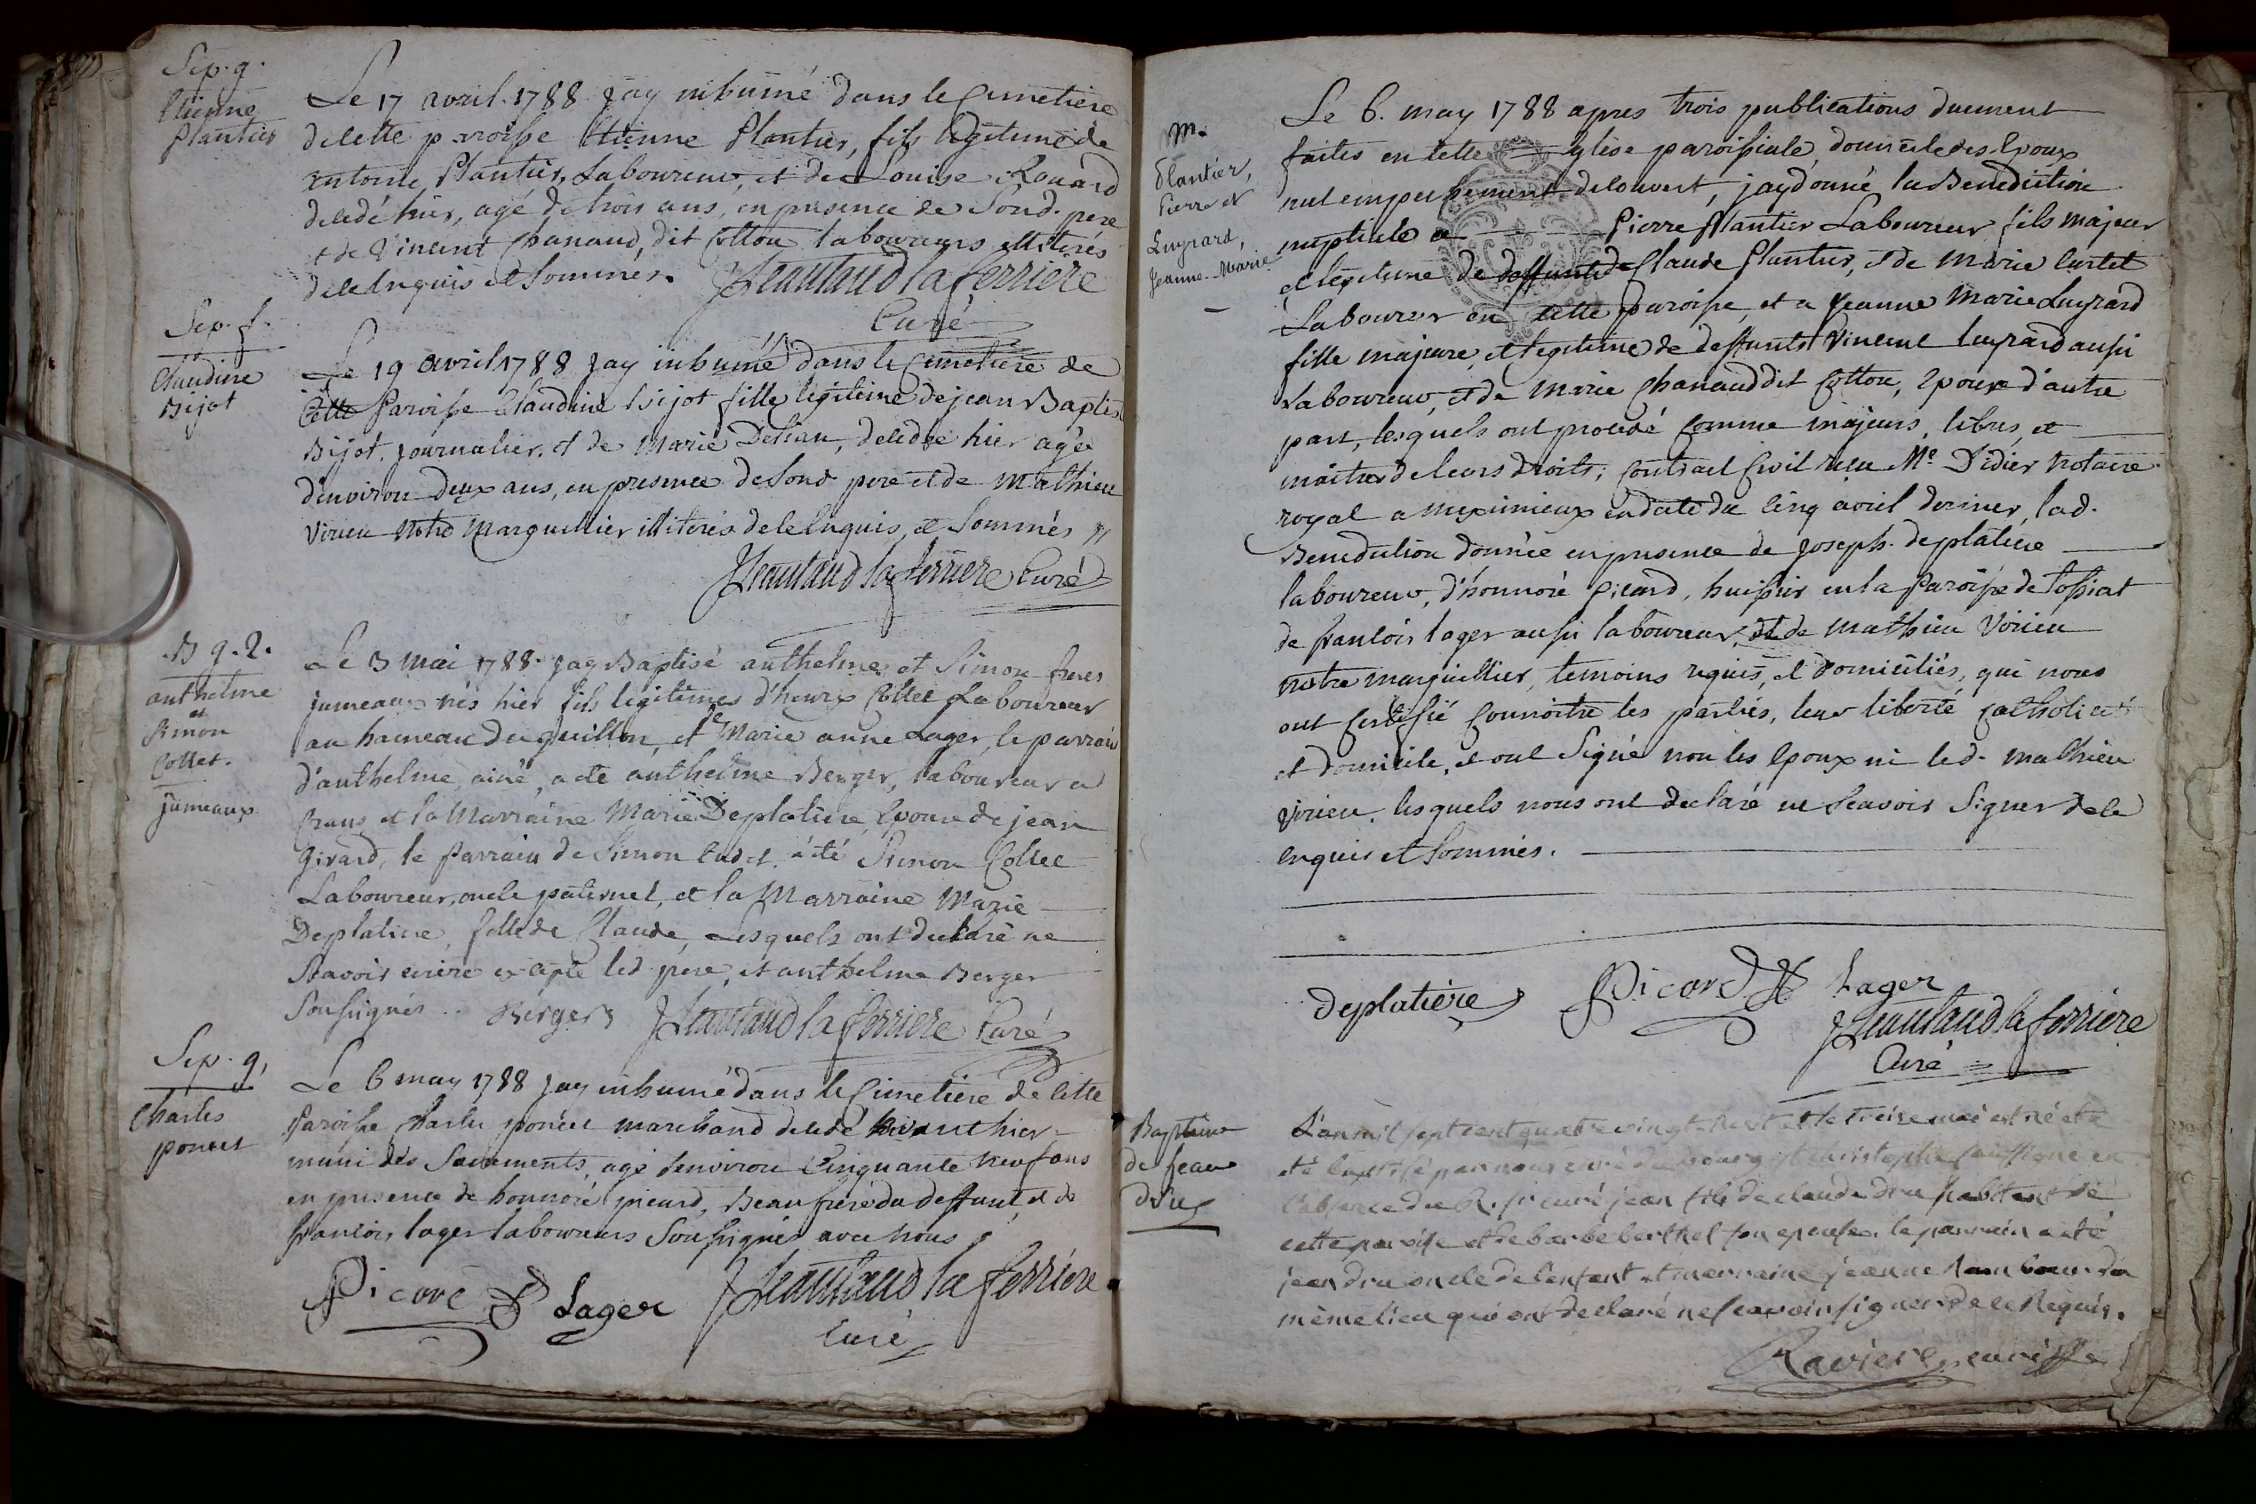 Sep. g.
Etienne
Plantier
Le 17 avril 1788 jay inhumé dans le Cimetiere
de cette paroisse Etienne Plantier, fils legitime de
antoine Plantier, Laboureur, et de Louise Rouard
decedé hier, agé de trois ans, en presence de Sond. pere
et de Vincent Chanaud, dit Cottou laboureurs illiterés
de ce Enquis et Sommés. JJeantaud la ferriere
Curé
Sep. f.
Claudine
Bijot
Le 19 avril 1788 jay inhumé dans le Cimetiere de
Cette Paroisse Claudine Bijot fille legitime de jean Baptiste
Bijot, journalier, et de Marie, decedée hier agée
d'environ deux ans, en presence de Sond pere et de Mathieu
Virieu Notre Marguillier illiterés de ce Enquis, et Sommés
JJeantaud la ferriere Curé
B g. 2.
anthelme
et
Simon
Collet.
jumeaux
Le 3 mai 1788 jay Baptisé anthelme et Simon freres
jumeaux nés hier fils legitimes d'henry Collet Laboureur
au hameau du guillon, et de Marie anne Lager, le parrain
d'anthelme, ainé, a eté anthelme Berger, laboureur a
Crans et la Marraine Marie Deplatiere Epouse de jean
Girard, le Parrain de Simon Cadet a eté Simon Collet
Laboureur, oncle paternel, et la Marraine Marie
Deplatiere, fille de Claude, Lesquels ont declaré ne
Scavoir ecrire excepté led. pere, et anthelme Berger
Soussignés. Berger JJeantaud la ferriere Curé
Sep. g,
Charles
poncet
Le 6 may 1788 jay inhumé dans le Cimetiere de Cette
Paroisse Charles poncet marchand decedé avant hier
muni des Sacrements, agé denviron Cinquante neuf ans
en presence de honnoré picard, Beaufrere du deffunt, et de
francois lager laboureurs Soussignés avec nous
Picard Lager JJeantaud la ferriere
Curé
M.
Plantier,
Pierre et
Lugrard,
Jeanne-Marie
Le 6. may 1788 apres trois publications duement
faites en cette Eglise paroissiale, domicile des Epoux
nul empechement decouvert, jay donné la Benediction
nuptiale a Pierre Plantier Laboureur fils majeur
et legitime de deffunt de Claude Plantier, et de Marie Curtet
Laboureur en cette paroisse, et a Jeanne Marie Lugrard
fille majeure, et legitime de deffunts Vincent Lugrard aussi
Laboureur, et de Marie Chanaud dit Cottou, Epoux d'autre
part, lesquels ont procedé Comme majeurs, libres, et
maitres de leurs droits; Contract Civil recu Me. Didier Notaire
royal a meximieux en date du Cinq avril dernier, lad.
Benediction donnée en presence de Joseph deplatiere
laboureur, d'honnoré Picard, huissier en la Paroisse de
de francois lager aussi laboureur, et de mathieu Virieu
notre marguillier, temoins requis, et Domiciliés, qui nous
ont Certifié Connoitre les parties, leur liberté Catholicité
et domicile, et ont Signé non les Epoux ni led. mathieu
Virieu, lesquels nous ont declaré ne Scavoir Signer de ce
enquis et Sommés.
deplatière Picard Lager
JJeantaud la ferriere
Curé
Baptême
de jean
Dru
L'an mil sept cent quatre vingt huit et le treize mai est né et a
été baptisé par nous curé du bourg St christophe soussigné en
l'absence du R. Sr curé jean fils de claude dru habitant de
cette paroisse et de barbe berthet son epouse. le parrain a eté
jean dru oncle de l'enfant et marraine jeanne du
même lieu qui ont declaré ne scavoir signer de ce Requis.
Ravier curé